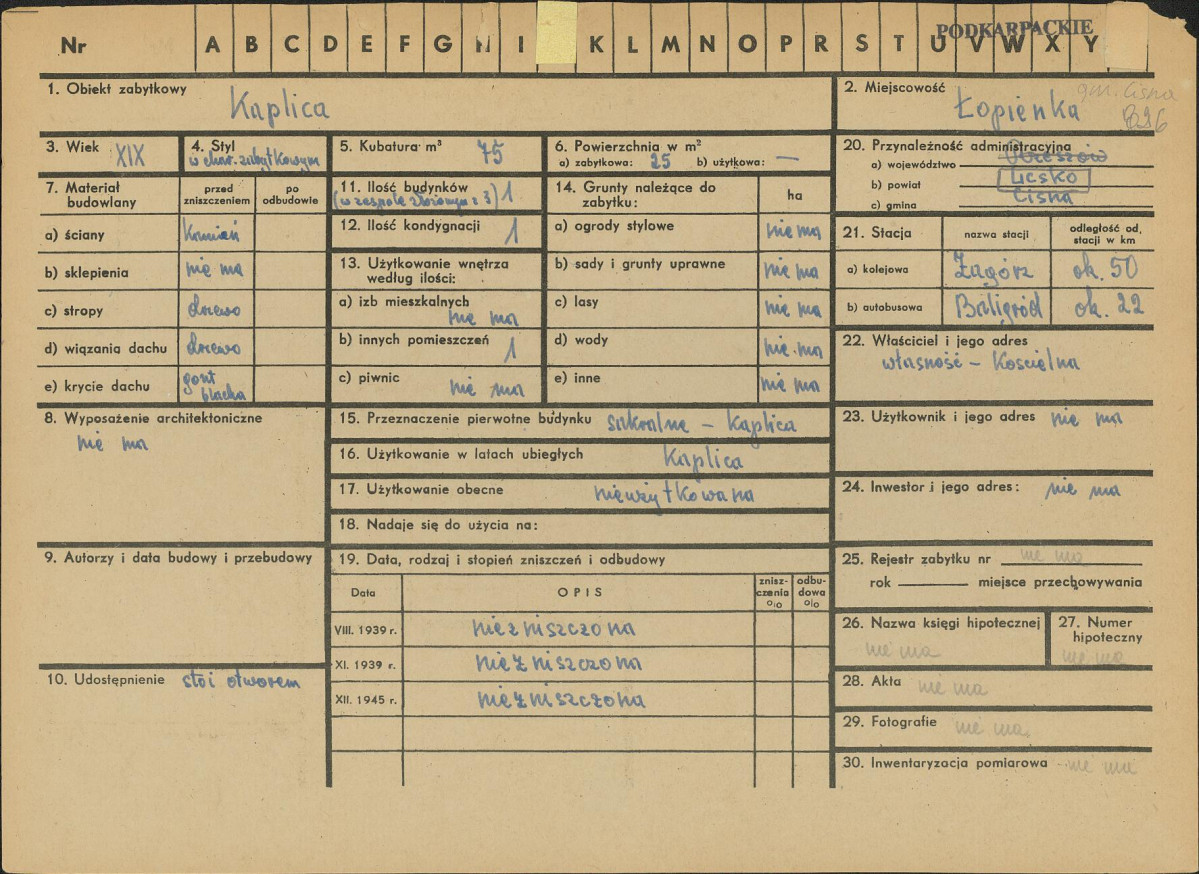 PODKARPACKIE
Nr A B C D E F G H I K L M N O P R S T U V W X Y
1. Obiekt zabytkowy Kaplica
2. Miejscowość Łopienka
gm. Cisna
3. Wiek XIX
4. Styl w char. zabytkowym
5. Kubatura m³ 75
6. Powierzchnia w m²
a) zabytkowa: 25 b) użytkowa: —
7. Materiał budowlany
przed zniszczeniem
po odbudowie
a) ściany kamień
b) sklepienia nie ma
c) stropy drzewo
d) wiązania dachu drzewo
e) krycie dachu gont blacha
8. Wyposażenie architektoniczne
nie ma
9. Autorzy i data budowy i przebudowy
10. Udostępnienie stoi otworem
11. Ilość budynków 1
(w zespole złożonym z 3)
12. Ilość kondygnacji 1
13. Użytkowanie wnętrza według ilości:
a) izb mieszkalnych nie ma
b) innych pomieszczeń 1
c) piwnic nie ma
14. Grunty należące do zabytku: ha
a) ogrody stylowe nie ma
b) sady i grunty uprawne nie ma
c) lasy nie ma
d) wody nie ma
e) inne nie ma
15. Przeznaczenie pierwotne budynku sakralne – Kaplica
16. Użytkowanie w latach ubiegłych Kaplica
17. Użytkowanie obecne nieużytkowana
18. Nadaje się do użycia na:
19. Data, rodzaj i stopień zniszczeń i odbudowy
Data OPIS zniszczenia o/o odbudowa o/o
VIII. 1939 r. niezniszczona
XI. 1939 r. niezniszczona
XII. 1945 r. niezniszczona
20. Przynależność administracyjna
a) województwo Rzeszów
b) powiat Lesko
c) gmina Cisna
21. Stacja nazwa stacji odległość od stacji w km
a) kolejowa Zagórz ok. 50
b) autobusowa Baligród ok. 22
22. Właściciel i jego adres
własność – Kościelna
23. Użytkownik i jego adres nie ma
24. Inwestor i jego adres: nie ma
25. Rejestr zabytku nr nie ma
rok miejsce przechowywania
26. Nazwa księgi hipotecznej
nie ma
27. Numer hipoteczny
nie ma
28. Akta nie ma
29. Fotografie nie ma
30. Inwentaryzacja pomiarowa nie ma